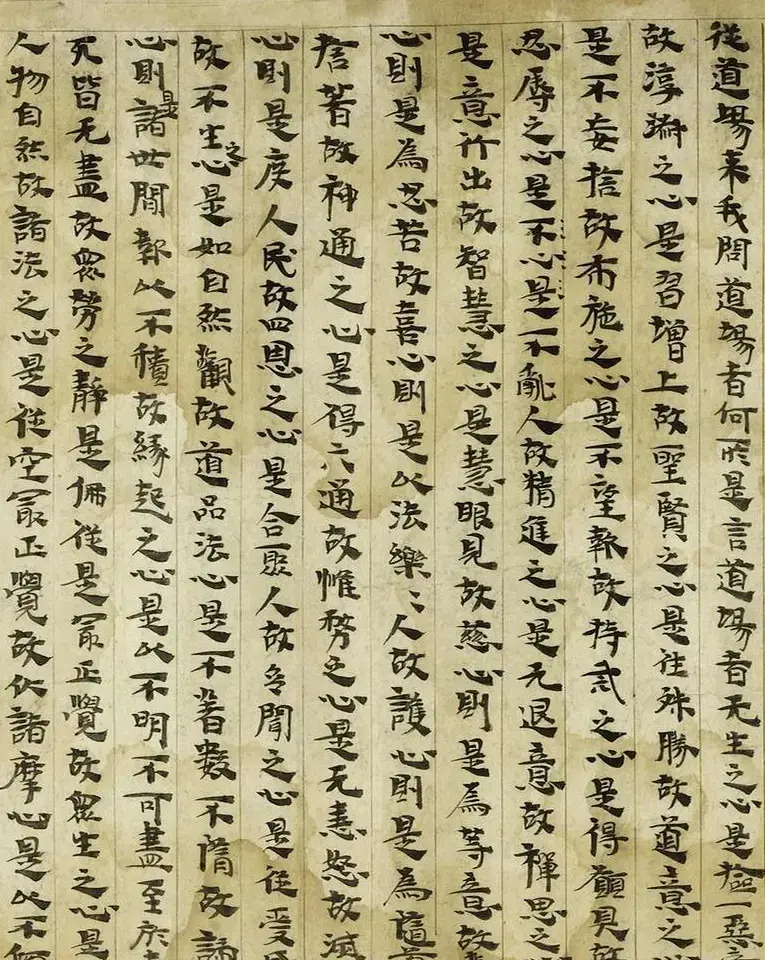 從道場來我問道場者何所是言道場者无生之心是撿一惡意
故淳淑之心是習增上故聖賢之心是往殊勝故道意之心
是不妄捨故布施之心是不望報故持戒之心是得願具故
忍辱之心是不心是不亂人故精進之心是无退意故禪思之
是意行出故智慧之心是慧眼見故慈心則是為等意故
心則是為忍苦故喜心則是以法樂〻人故護心則是為
捨著故神通之心是得六通故惟務之心是无恚怒故滅
心則是度人民故四恩之心是合聚人故多聞之心是從受
故不生之心是如自然觀故道品法心是不著數不惰故諦
心則是諸世間報以不積故緣起之心是以不明不可盡至於
死皆无盡故眾勞之靜是佛從是冣正覺故眾生之心是
人物自然故諸法之心是從空冣正覺故伏諸摩心是以不